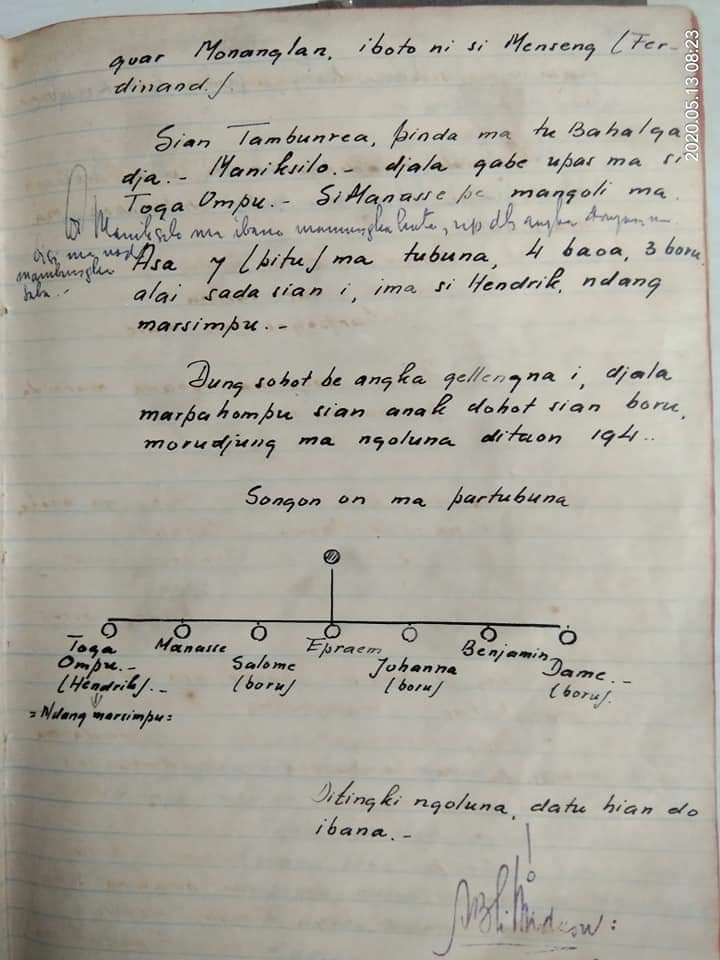 quar Monanglan, iboto ni si Menseng (Fer-
dinand.)
Sian Tambunrea, pinda ma tu Bahalga
dja.- Maniksilo.- djala gabe upas ma si
Toga Ompu.- Si Manasse pe mangoli ma.
ma ibana
Asa 7 (pitu) ma tubuna, 4 baoa, 3 boru,
alai sada sian i, ima si Hendrik, ndang
marsimpu.-
Dung sohot be angka gellengna i, djala
marpahompu sian anak dohot sian boru,
morudjung ma ngoluna ditaon 194..
Songon on ma partubuna
Toga
Ompu.-
(Hendrik).-
=Ndang marsimpu=
Manasse
Salome
(boru)
Epraem
Johanna
(boru)
Benjamin
Dame.-
(boru).
Ditingki ngoluna, datu hian do
ibana.-
2020.05.13 08:23